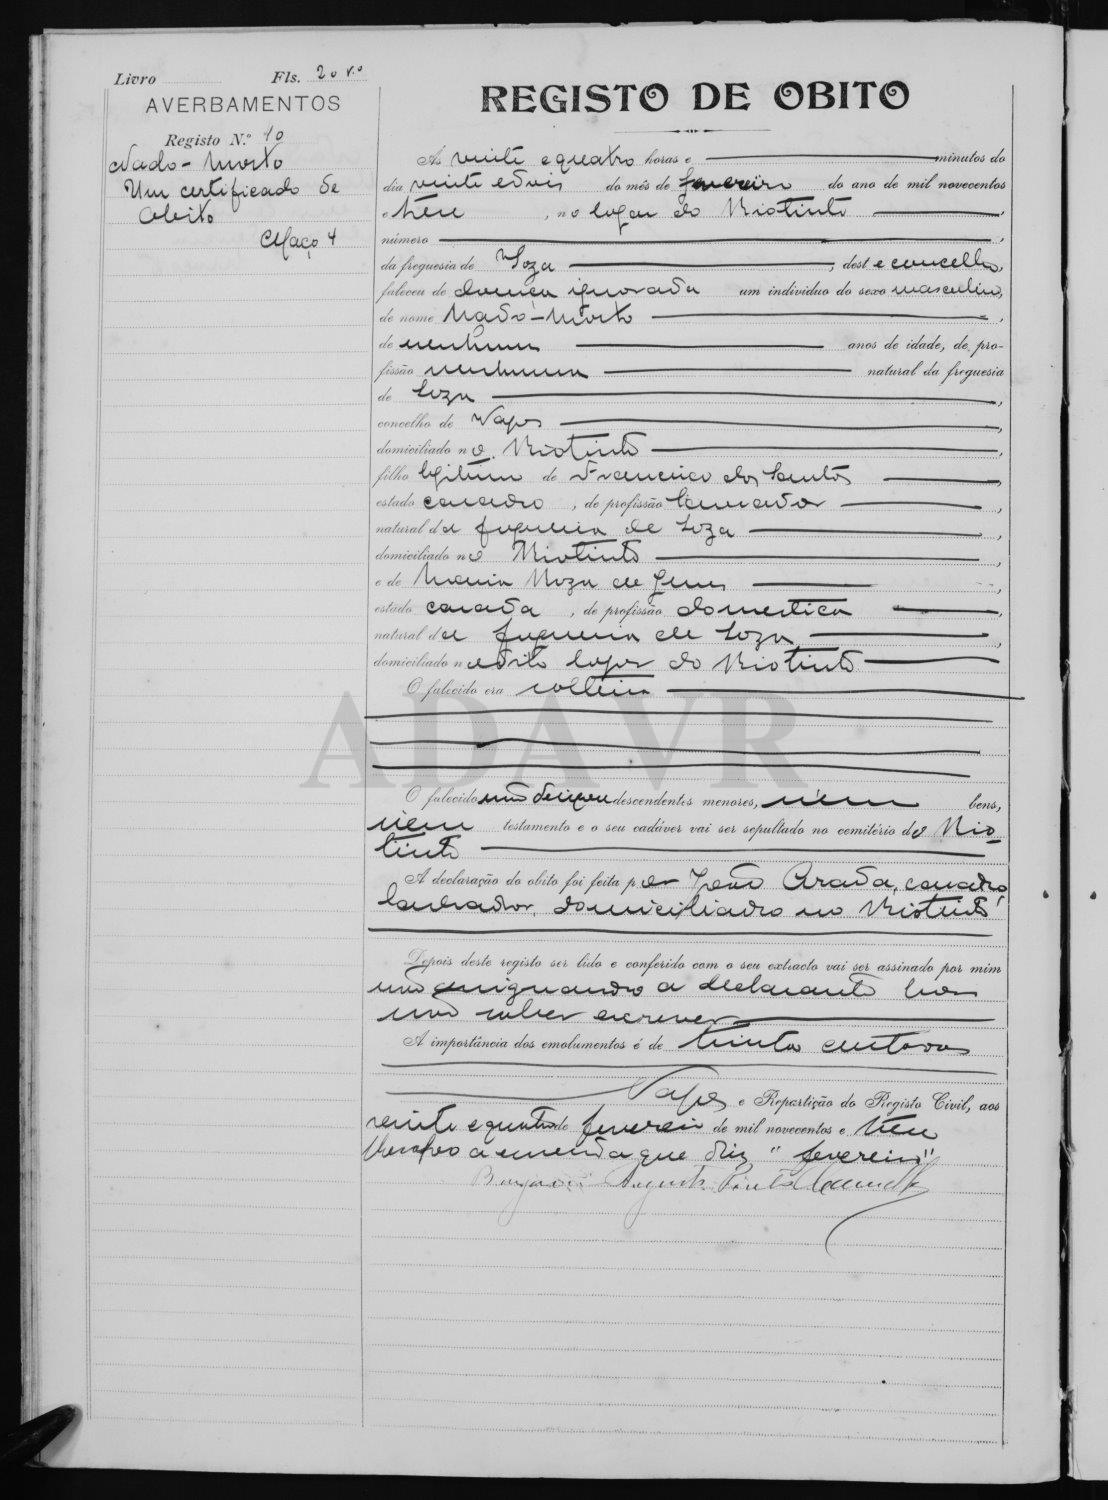 Livro Fls. 20 v.º
AVERBAMENTOS
Registo N.º 10
Nado-Morto
Um certificado de
obito
Maço 4
REGISTO DE OBITO
Ás vinte e quatro horas e minutos do
dia vinte e dois do mês de fevereiro do ano de mil novecentos
e treu, no logar do Riotinto,
número,
da freguesia de Soza, deste concelho,
faleceu de doença ignorada um individuo do sexo masculino,
de nome Nado-Morto,
de nenhum anos de idade, de pro-
fissão nenhuma natural da freguesia
de Soza,
concelho de Vagos,
domiciliado no Riotinto,
filho legitimo de Francisco dos Santos,
estado casado, de profissão lavrador,
natural da freguesia de Soza,
domiciliado no Riotinto,
e de Maria Roza de Jesus,
estado casada, de profissão domestica,
natural da freguesia de Soza,
domiciliado no dito logar do Riotinto
O falecido era solteiro
ADAVR
O falecido não deixou descendentes menores, nem bens,
nem testamento e o seu cadáver vai ser sepultado no cemitério do Rio-
tinto
A declaração do obito foi feita por João casado,
lavrador, domiciliado no Riotinto
Depois deste registo ser lido e conferido com o seu extracto vai ser assinado por mim
não assignando o declarante por
não saber escrever
A importância dos emolumentos é de trinta centavos
Vagos e Repartição do Registo Civil, aos
vinte e quatro de fevereiro de mil novecentos e treu
Resalvo a emenda que diz "fevereiro"
Augusto